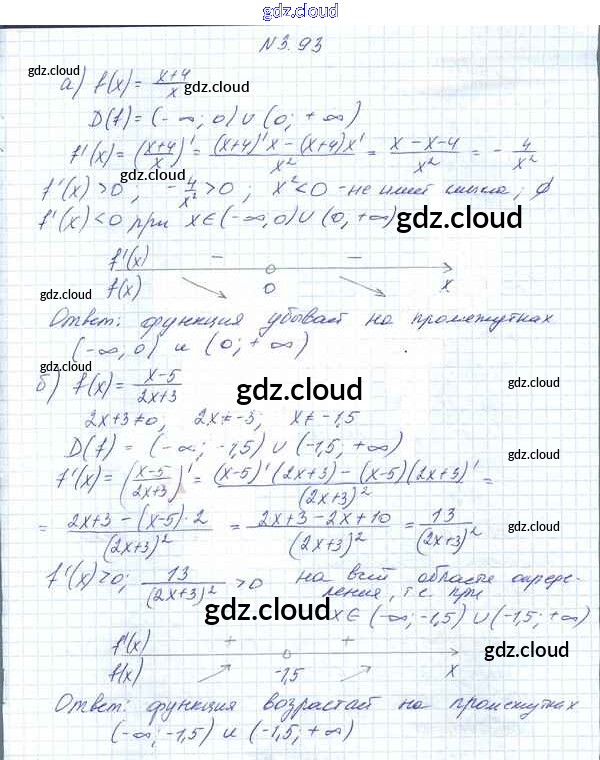 gdz.cloud
N3.93
gdz.cloud
а) f(x) = (x+4)/x
gdz.cloud
D(f) = (-∞; 0) ∪ (0; +∞)
gdz.cloud
f'(x) = ((x+4)/x)' = ((x+4)'x - (x+4)x')/x² = (x-x-4)/x² = - 4/x²
gdz.cloud
f'(x) > 0 ; - 4/x² > 0 ; x² < 0 - не имеет смысла; ∅
f'(x) < 0 при x ∈ (-∞, 0) ∪ (0, +∞)
gdz.cloud
f'(x) - -
f(x) 0 x
gdz.cloud
gdz.cloud
Ответ: функция убывает на промежутках
(-∞, 0) и (0; +∞)
б) f(x) = (x-5)/(2x+3)
gdz.cloud
2x+3≠0, 2x≠-3; x≠-1,5
D(f) = (-∞; -1,5) ∪ (-1,5; +∞)
gdz.cloud
f'(x) = ((x-5)/(2x+3))' = ((x-5)'(2x+3) - (x-5)(2x+3)')/(2x+3)² =
gdz.cloud
= (2x+3 - (x-5)·2)/(2x+3)² = (2x+3-2x+10)/(2x+3)² = 13/(2x+3)²
gdz.cloud
f'(x) > 0; 13/(2x+3)² > 0 на всей области опреде-
ления, т.е. при
gdz.cloud
x ∈ (-∞; -1,5) ∪ (-1,5; +∞)
f'(x) + +
gdz.cloud
f(x) -1,5 x
gdz.cloud
Ответ: функция возрастает на промежутках
(-∞; -1,5) и (-1,5; +∞)
gdz.cloud
gdz.cloud